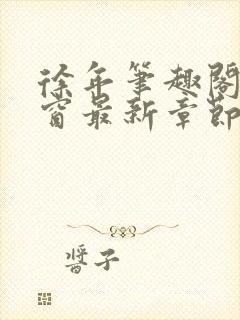 徐年笔趣阁
窗最新章节
醬子